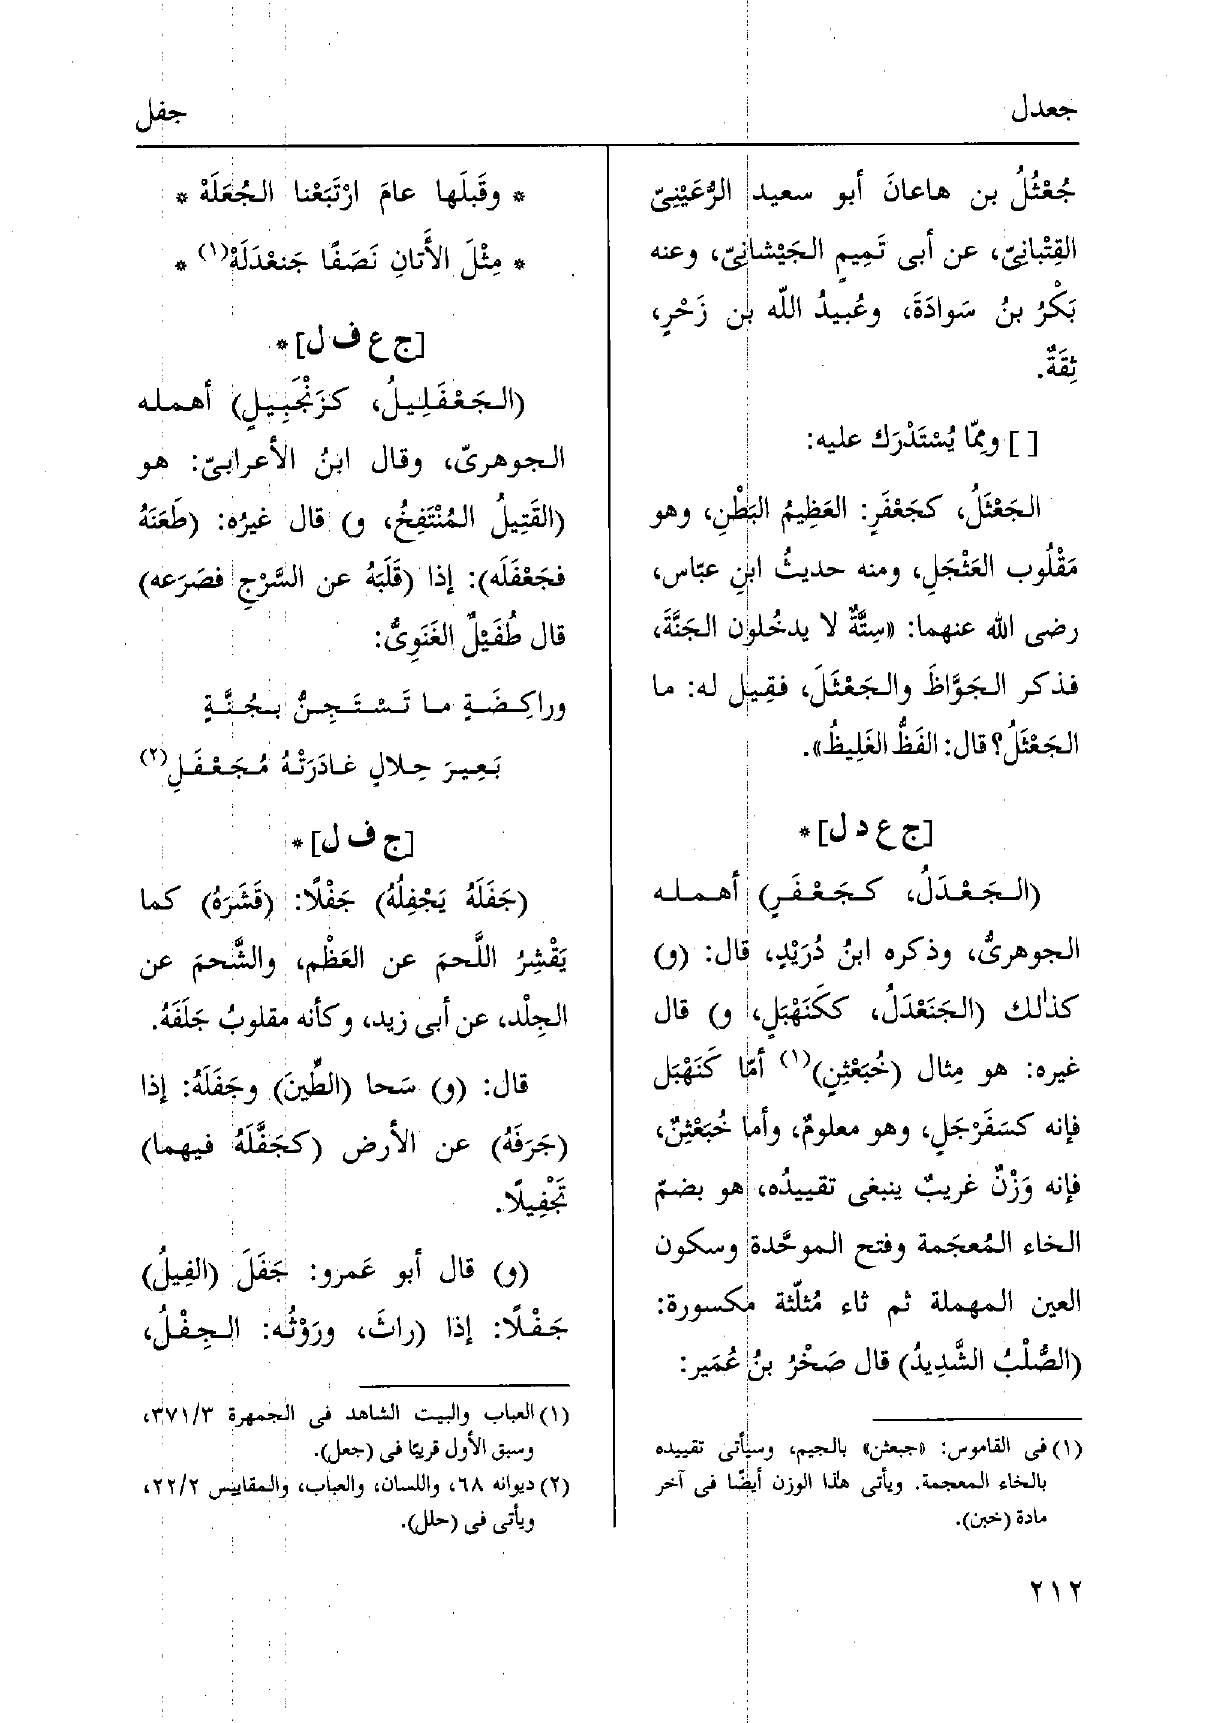 جعدل
جفل
جُعْثُلُ بن هاعانَ أبو سعيد الرُّعَيْنِىّ
القِتْبانِىّ، عن أبى تَمِيمٍ الجَيْشانِىّ، وعنه
بَكْرُ بنُ سَوادَةَ، وعُبيدُ اللّه بن زَحْرٍ،
ثِقَةٌ.
[ ] وممّا يُسْتَدْرَك عليه:
الجَعْثَلُ، كجَعْفَرٍ: العَظِيمُ البَطْنِ، وهو
مَقْلُوب العَثْجَلِ، ومنه حديثُ ابنِ عبّاس،
رضى الله عنهما: «سِتَّةٌ لا يدخُلون الجَنَّةَ،
فذكر الجَوَّاظَ والجَعْثَلَ، فقِيل له: ما
الجَعْثَلُ؟ قال: الفَظُّ الغَلِيظُ».
[ج ع د ل] *
(الجَعْدَلُ، كجَعْفَرٍ) أهمله
الجوهرىُّ، وذكره ابنُ دُرَيْدٍ، قال: (و)
كذلك (الجَنَعْدَلُ، ككَنَهْبَلٍ، و) قال
غيره: هو مِثال (خُبَعْثِنٍ)(١) أمّا كَنَهْبَل
فإنه كسَفَرْجَلٍ، وهو معلومٌ، وأما خُبَعْثِنٌ،
فإنه وَزْنٌ غريبٌ ينبغى تقييدُه، هو بضمّ
الخاء المُعجَمة وفتح الموحَّدة وسكون
العين المهملة ثم ثاء مُثلّثة مكسورة:
(الصُّلْبُ الشَّدِيدُ) قال صَخْرُ بنُ عُمَير:
(١) فى القاموس: «جبعثن» بالجيم، وسيأتى تقييده
بالخاء المعجمة. ويأتى هذا الوزن أيضًا فى آخر
مادة (خبن).
* وقَبلَها عامَ ارْتَبَعْنا الجُعَلَهْ *
* مِثْلَ الأَتانِ نَصَفًا جَنعْدَلَهْ(١) *
[ج ع ف ل] *
(الجَعْفَلِيلُ، كزَنْجَبِيلٍ) أهمله
الجوهرىّ، وقال ابنُ الأعرابىّ: هو
(القَتِيلُ المُنْتَفِخُ، و) قال غيرُه: (طَعَنَهُ
فجَعْفَلَه): إذا (قَلَبَهُ عن السَّرْجِ فصَرَعه)
قال طُفَيْلٌ الغَنَوِىُّ:
وراكِضَةٍ ما تَسْتَجِنُّ بجُنَّةٍ
بَعِيرَ حِلالٍ غادَرَتْهُ مُجَعْفَلِ(٢)
[ج ف ل] *
(جَفَلَهُ يَجْفِلُهُ) جَفْلًا: (قَشَرَهُ) كما
يَقْشِرُ اللَّحمَ عن العَظْم، والشَّحمَ عن
الجِلْد، عن أبى زيد، وكأنه مقلوبُ جَلَفَهُ.
قال: (و) سَحا (الطِّينَ) وجَفَلَهُ: إذا
(جَرَفَهُ) عن الأرض (كجَفَّلَهُ فيهما)
تَجْفِيلًا.
(و) قال أبو عَمرو: جَفَلَ (الفِيلُ)
جَفْلًا: إذا (راثَ، ورَوْثُه: الجِفْلُ،
(١) العباب والبيت الشاهد فى الجمهرة ٣٧١/٣،
وسبق الأول قريبًا فى (جعل).
(٢) ديوانه ٦٨، واللسان، والعباب، والمقاييس ٢٢/٢،
ويأتى فى (حلل).
٢١٢